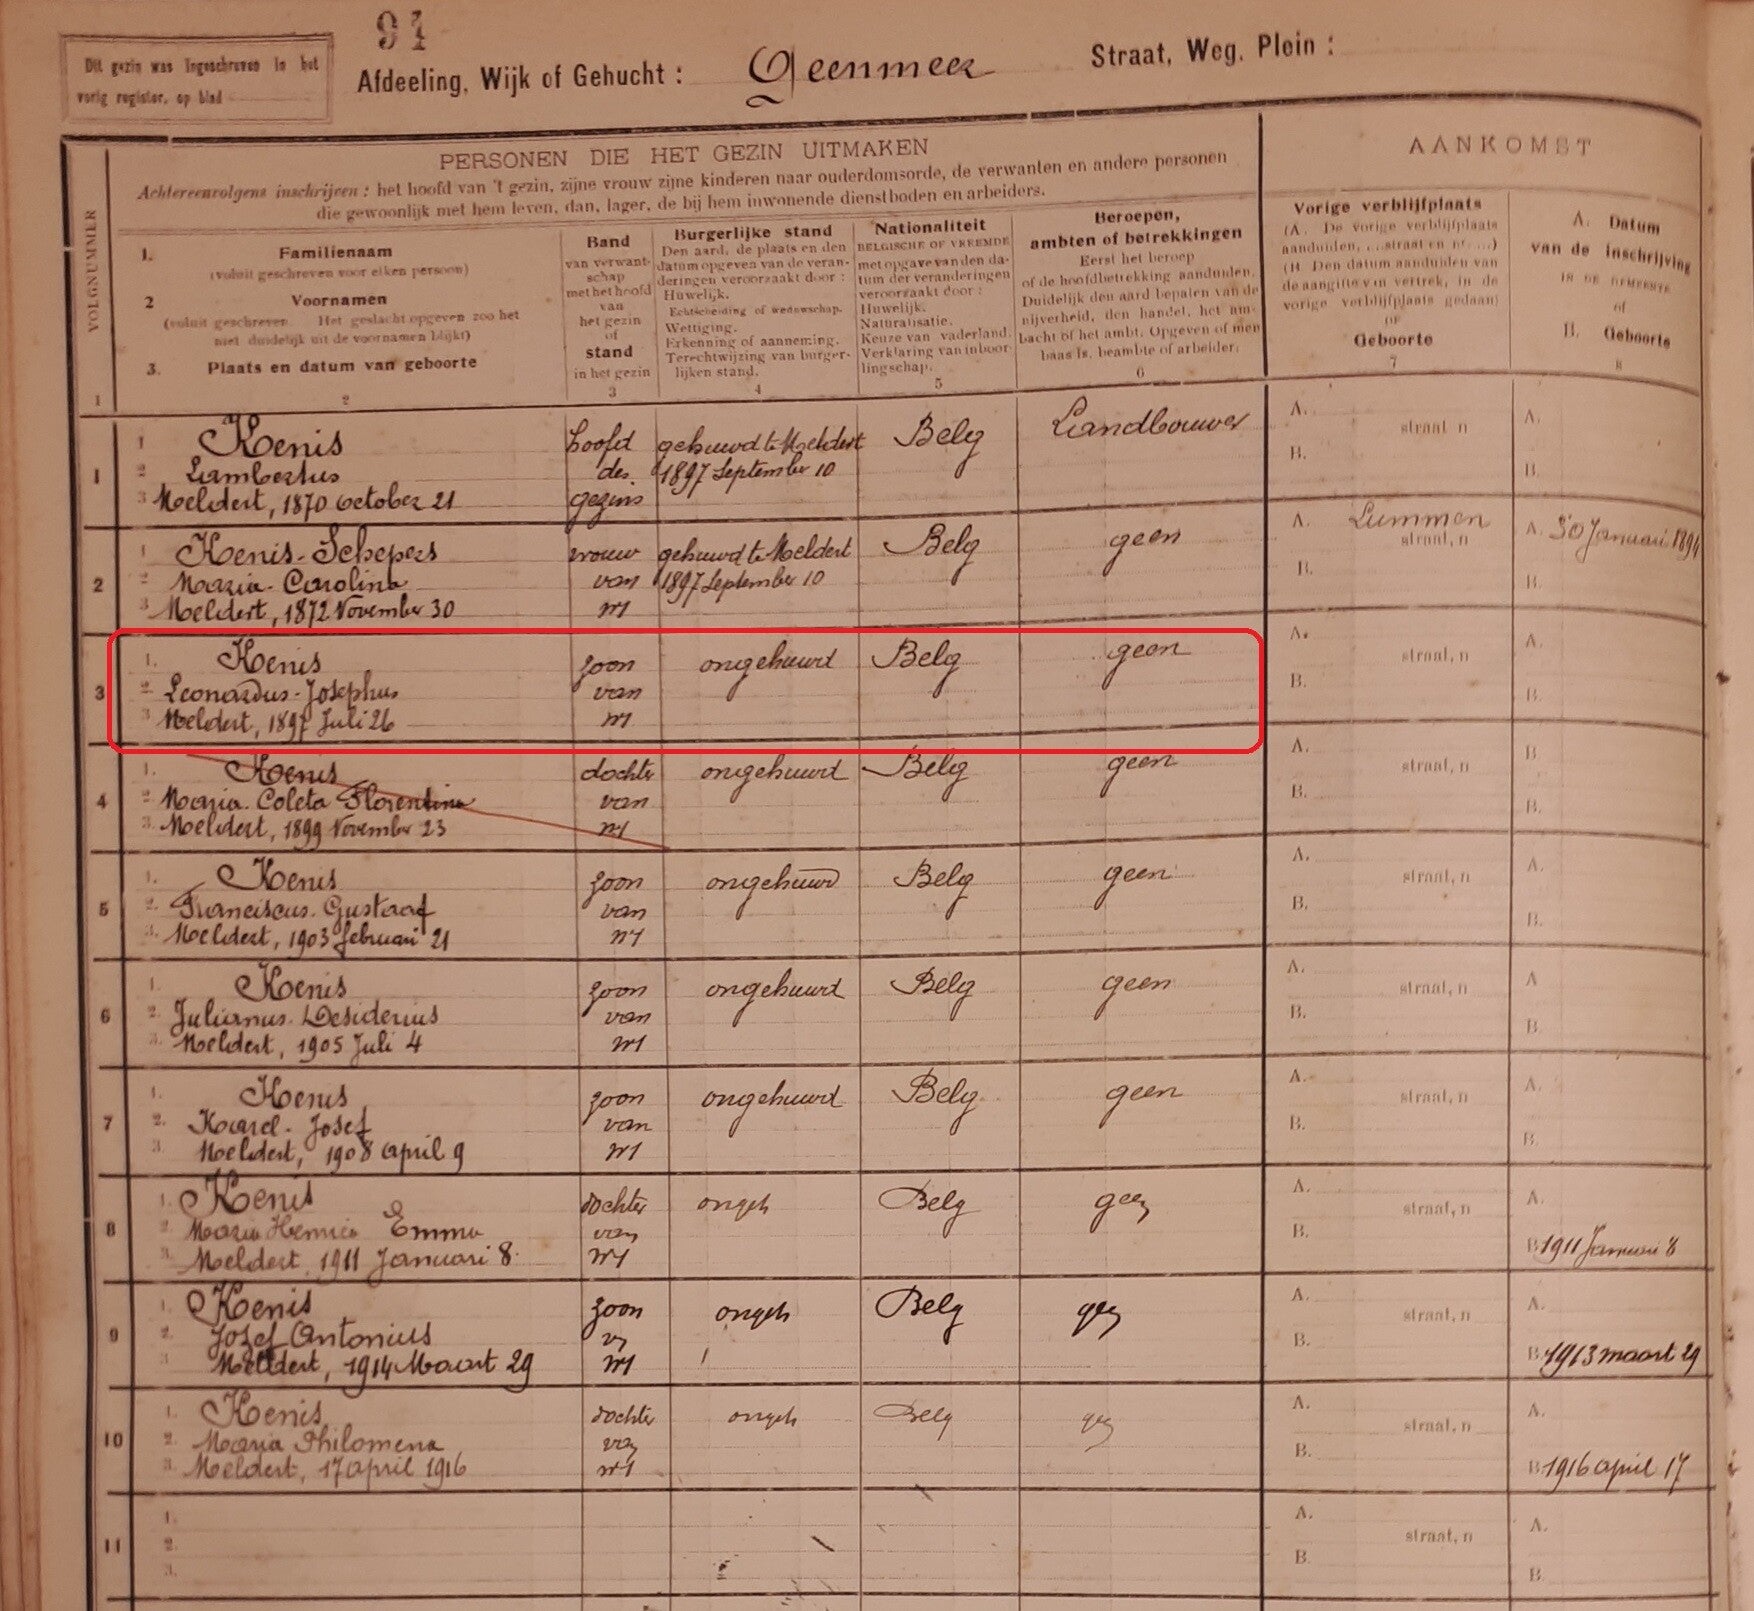 94
Dit gezin was ingeschreven in het
vorig register, op blad
Afdeeling, Wijk of Gehucht : Geenmeer Straat, Weg, Plein :
PERSONEN DIE HET GEZIN UITMAKEN
Achtereenvolgens inschrijven : het hoofd van 't gezin, zijne vrouw zijne kinderen naar ouderdomsorde, de verwanten en andere personen
die gewoonlijk met hem leven, dan, lager, de bij hem inwonende dienstboden en arbeiders.
AANKOMST
VOLGNUMMER
1
1. Familienaam
(voluit geschreven voor elken persoon)
2 Voornamen
(voluit geschreven. Het geslacht opgeven zoo het
niet duidelijk uit de voornamen blijkt)
3. Plaats en datum van geboorte
2
Band
van verwant-
schap
met het hoofd
van
het gezin
of
stand
in het gezin
3
Burgerlijke stand
Den aard, de plaats en den
datum opgeven van de veran-
deringen veroorzaakt door :
Huwelijk.
Echtscheiding of weduwschap.
Wettiging.
Erkenning of aanneming.
Terechtwijzing van burger-
lijken stand.
4
Nationaliteit
BELGISCHE OF VREEMDE
met opgave van den da-
tum der veranderingen
veroorzaakt door :
Huwelijk.
Naturalisatie.
Keuze van vaderland.
Verklaring van inboor-
lingschap.
5
Beroepen,
ambten of betrekkingen
Eerst het beroep
of de hoofdbetrekking aanduiden.
Duidelijk den aard bepalen van de
nijverheid, den handel, het am-
bacht of het ambt. Opgeven of men
baas is, beambte of arbeider.
6
Vorige verblijfplaats
(A. De vorige verblijfplaats
aanduiden, ...straat en nr....)
(B. Den datum aanduiden van
de aangifte van vertrek, in de
vorige verblijfplaats gedaan)
OF
Geboorte
7
A. Datum
van de inschrijving
IN DE GEMEENTE
of
B. Geboorte
8
1
1 Kenis hoofd gehuwd te Meldert Belg Landbouwer A. straat n A.
2 Lambertus des 1897 September 10
3 Meldert, 1870 October 21 gezins B. B.
2
1 Kenis-Schepers vrouw gehuwd te Meldert Belg geen A. Lummen straat, n A. 30 Januari 1894
2 Maria-Carolina van 1897 September 10
3 Meldert, 1872 November 30 n1 B. B.
3
1. Kenis zoon ongehuwd Belg geen A. straat, n A.
2. Leonardus-Josephus van
3 Meldert, 1897 Juli 26 n1 B. B.
4
1. Kenis dochter ongehuwd Belg geen A. straat, n B
2 Maria-Coleta Florentina van
3. Meldert, 1899 November 23 n1 B. B.
5
1. Kenis zoon ongehuwd Belg geen A. straat, n A.
2. Franciscus-Gustaaf van
3. Meldert, 1903 februari 21 n1 B. B.
6
1. Kenis zoon ongehuwd Belg geen A. straat, n A
2. Julianus-Desiderius van
3. Meldert, 1905 Juli 4 n1 B. B.
7
1. Kenis zoon ongehuwd Belg geen A. straat, n A.
2. Karel-Josef van
3. Meldert, 1908 april 9 n1 B. B.
8
1. Kenis dochter ongeh Belg geen A. straat, n A.
2. Maria Henrica Emma van
3. Meldert, 1911 Januari 8 n1 B. B 1911 Januari 8
9
1. Kenis zoon ongeh Belg geen A. straat, n A.
2. Jozef Antonius van
3 Meldert, 1914 Maart 29 n1 B. B. 1913 maart 29
10
1. Kenis dochter ongeh Belg geen A. straat, n A.
2. Maria Philomena van
3. Meldert, 17 april 1916 n1 B. B. 1916 april 17
11
1. A. straat, n A.
2.
3. B. B.